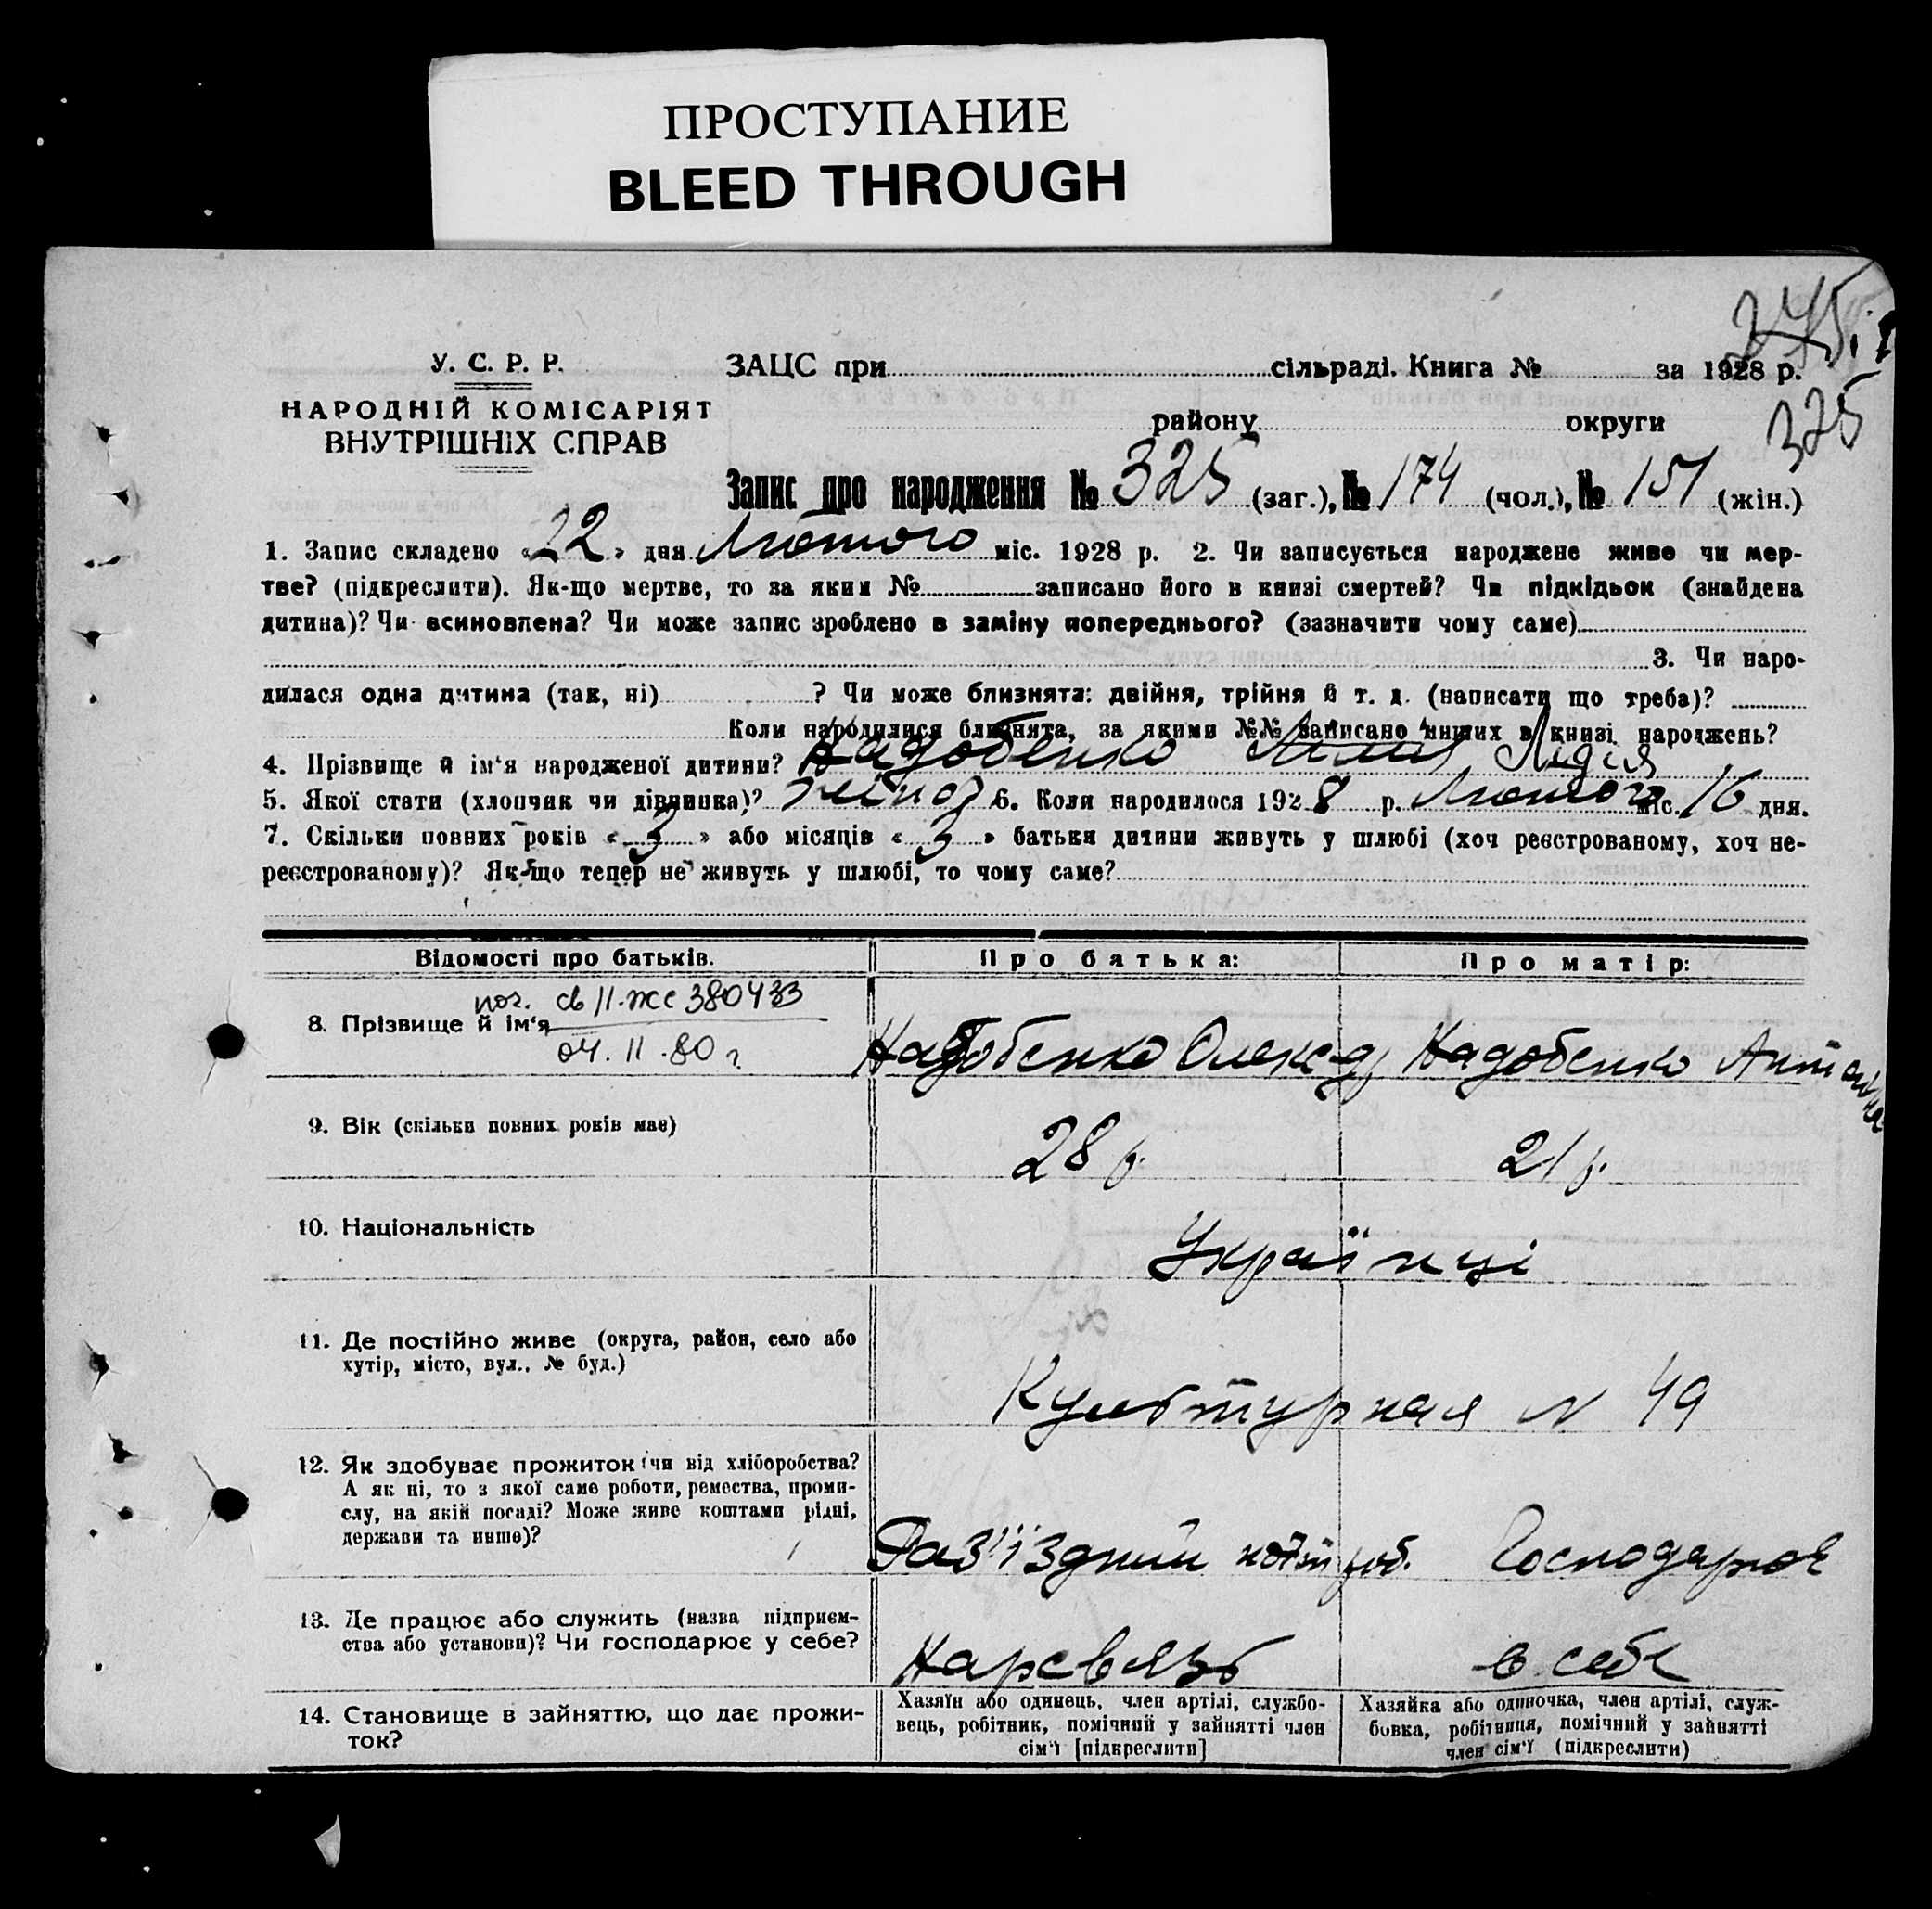 ПРОСТУПАНИЕ
BLEED THROUGH
325
У. С. Р. Р.
НАРОДНІЙ КОМІСАРІЯТ
ВНУТРІШНІХ СПРАВ
ЗАЦС при сільраді. Книга № за 1928 р.
району округи
Запис про народження № 325 (заг.), № 174 (чол.), № 151 (жін.)
1. Запис складено «22» дня Лютого міс. 1928 р. 2. Чи записується народжене живе чи мер-
тве? (підкреслити). Як-що мертве, то за яким № записано його в книзі смертей? Чи підкідьок (знайдена
дитина)? Чи всиновлена? Чи може запис зроблено в заміну попереднього? (зазначити чому саме)
3. Чи наро-
дилася одна дитина (так, ні) ? Чи може близнята: двійня, трійня й т. д. (написати що треба)?
Коли народилися близнята, за якими №№ записано инших в книзі народжень?
4. Прізвище й ім'я народженої дитини? Надобенко Лідія
5. Якої стати (хлопчик чи дівчинка)? 6. Коли народилося 1928 р. Лютого міс. 16 дня.
7. Скільки повних років «3» або місяців «3» батьки дитини живуть у шлюбі (хоч реєстрованому, хоч не-
реєстрованому)? Як-що тепер не живуть у шлюбі, то чому саме?
Відомості про батьків. Про батька: Про матір:
8. Прізвище й ім'я Надобенко Олександ Надобенко Антоніна
пов. св II-ЖС 380433
04.II.80 г.
9. Вік (скільки повних років має) 28 р. 21 р.
10. Національність Українці
11. Де постійно живе (округа, район, село або
хутір, місто, вул., № буд.)
Культурная N 49
12. Як здобуває прожиток (чи від хліборобства?
А як ні, то з якої саме роботи, ремества, проми-
слу, на якій посаді? Може живе коштами рідні,
держави та инше)?
Раз'їздний Господарює
13. Де працює або служить (назва підприєм-
ства або установи)? Чи господарює у себе?
Нарсвязь в себе
14. Становище в зайняттю, що дає прожи-
ток?
Хазяїн або одинець, член артілі, службо-
вець, робітник, помічний у зайнятті член
сім'ї [підкреслити]
Хазяйка або одиночка, член артілі, служ-
бовка, робітниця, помічний у зайнятті
член сім'ї (підкреслити)